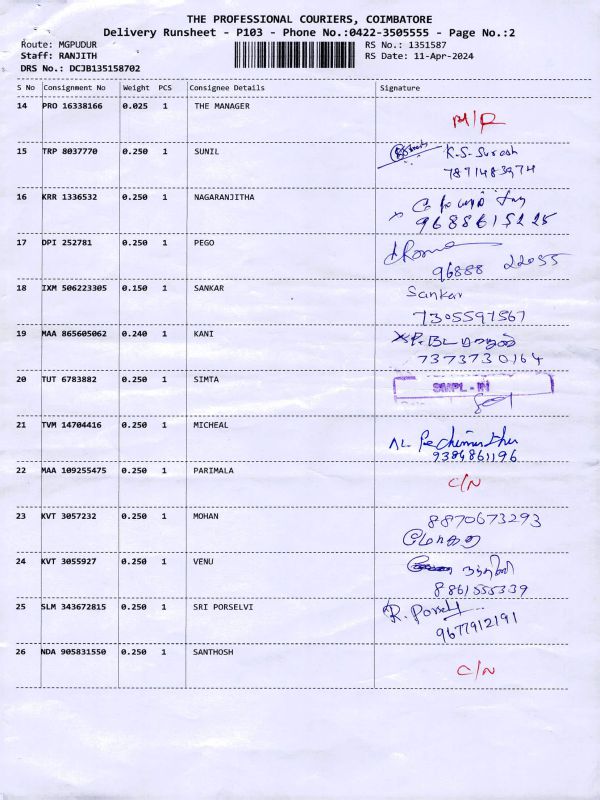 THE PROFESSIONAL COURIERS, COIMBATORE
Delivery Runsheet - P103 - Phone No.:0422-3505555 - Page No.:2
Route: MGPUDUR RS No.: 1351587
Staff: RANJITH RS Date: 11-Apr-2024
DRS No.: DCJB135158702
S No Consignment No Weight PCS Consignee Details Signature
14 PRO 16338166 0.025 1 THE MANAGER
15 TRP 8037770 0.250 1 SUNIL K.S. Suresh
7871483974
16 KRR 1336532 0.250 1 NAGARANJITHA
9688615225
17 DPI 252781 0.250 1 PEGO
96888 22055
18 IXM 506223305 0.150 1 SANKAR Sankar
7305597567
19 MAA 865605062 0.240 1 KANI
7373730164
20 TUT 6783882 0.250 1 SIMTA SMPL - IN
21 TVM 14704416 0.250 1 MICHEAL
9384861196
22 MAA 109255475 0.250 1 PARIMALA C/N
23 KVT 3057232 0.250 1 MOHAN 8870673293
24 KVT 3055927 0.250 1 VENU
8861555339
25 SLM 343672815 0.250 1 SRI PORSELVI R. Porselvi
9677912191
26 NDA 905831550 0.250 1 SANTHOSH C/N